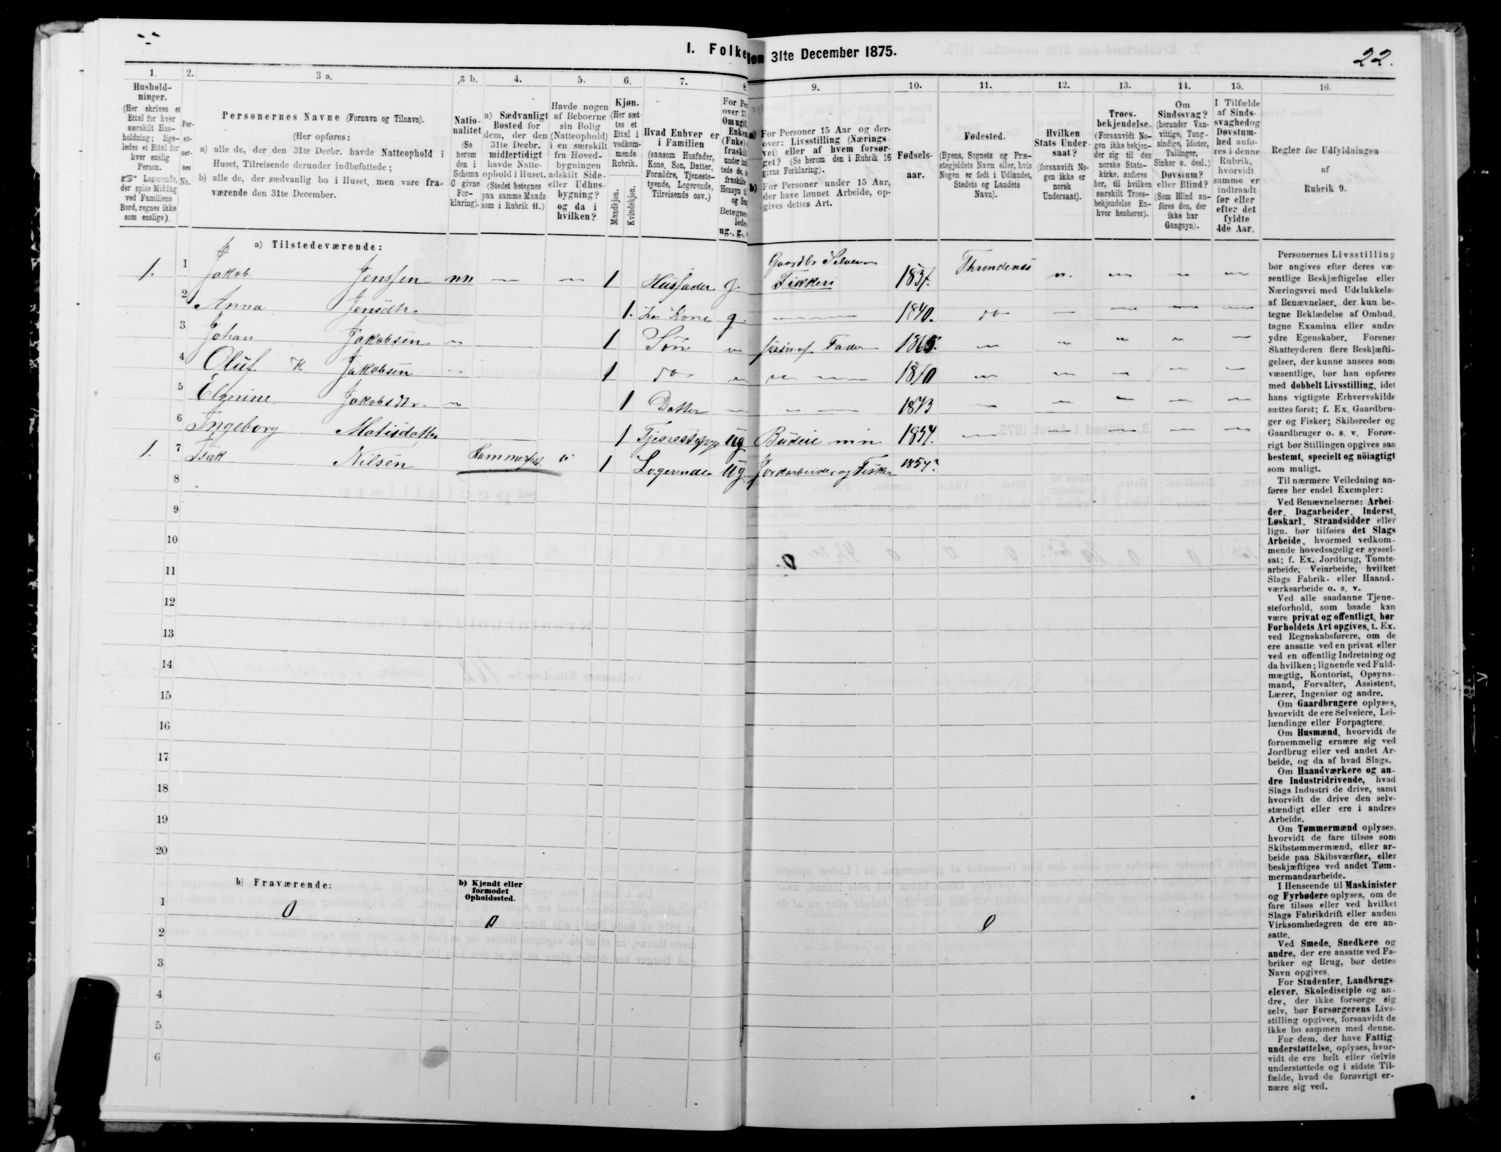 I. Folke
den 31te December 1875.
22.
1.
2.
3 a.
3 b.
4.
5.
6.
7.
8
9.
10.
11.
12.
13.
14.
15.
16.
Hushold-
ninger.
(Her skrives et
Ettal for hver
særskilt Hus-
holdning; lige-
ledes et Ettal for
hver enslig
Person.
☞ Logerende,
der spise Middag
ved Familiens
Bord, regnes ikke
som enslige).
Per-
so-
ner-
nes
No.
Personernes Navne (Fornavn og Tilnavn).
(Her opføres:
a) alle de, der den 31te Decbr. havde Natteophold i
Huset, Tilreisende derunder indbefattede;
b) alle de, der sædvanlig bo i Huset, men vare fra-
værende den 31te December.
Natio-
nalitet
(Se
herom
den i
Schema
C givne
For-
klaring).
a) Sædvanligt
Bosted for
dem, der den
31te Decbr.
midlertidigt
havde Natte-
ophold i Huset.
(Stedet betegnes
paa samme Maade
som i Rubrik 11.)
Havde nogen
af Beboerne
sin Bolig
(Natteophold)
i en særskilt
fra Hoved-
bygningen
adskilt Side-
eller Udhus-
bygning?
og da i
hvilken?
Kjøn.
(Her sæt-
tes et
Ettal i
vedkom-
mende
Rubrik.
Mandkjøn.
Kvindekjøn.
Hvad Enhver er
i Familien
(saasom Husfader,
Kone, Søn, Datter,
Forældre, Tjeneste-
tyende, Logerende,
Tilreisende osv.)
a) For Personer 15 Aar og der-
over: Livsstilling (Nærings-
vei) eller af hvem forsør-
get? (Se herom den i Rubrik 16
givne Forklaring).
b) For Personer under 15 Aar,
der have lønnet Arbeide, op-
gives dettes Art.
Fødsels-
aar.
Fødested.
(Byens, Sognets og Præ-
stegjeldets Navn eller, hvis
Nogen er født i Udlandet,
Stedets og Landets
Navn).
Hvilken
Stats Under-
saat?
(forsaavidt No-
gen ikke er
norsk
Undersaat).
Troes-
bekjendelse.
(Forsaavidt No-
gen ikke bekjen-
der sig til den
norske Stats-
kirke, anføres
her, til hvilken
særskilt Troes-
bekjendelse En-
hver henhører).
Om
Sindssvag?
(herunder Van-
vittige, Tung-
sindige, Idioter,
Tullinger,
Sinker o. desl.)
Døvstum?
eller Blind?
(Som Blind an-
føres den, der
ikke har
Gangsyn).
I Tilfælde
af Sinds-
svaghed og
Døvstum-
hed anfø-
res i denne
Rubrik,
hvorvidt
samme er
indtraadt
før eller
efter det
fyldte
4de Aar.
Regler for Udfyldningen
af
Rubrik 9.
a) Tilstedeværende:
1. 1 Jakob Jenssen nn 1 Husfader g. Gaardbr Selveier Fiskeri 1831. Throndenes
2 Anna Jensdtr 1. Kone g 1840. do
3 Johan Jakobsen 1 Søn Fader 1865.
4 Oluf K Jakobsen 1 do 1870
5 Elgerine Jakobsdtr 1 Datter 1873
6 Ingeborg Matisdatter 1 ug Budeie 1857.
1. 7 Isak Nilsen Hammerfest 1 Logerende ug Jordarbeider og Fisker 1857?
8
9
10
11
12
13
14
15
16
17
18
19
20
b) Fraværende:
b) Kjendt eller
formodet
Opholdssted.
0 0 0
1
2
3
4
5
6
Personernes Livsstilling
bør angives efter deres væ-
sentlige Beskjæftigelse eller
Næringsvei med Udelukkelse
af Benævnelser, der kun be-
tegne Beklædelse af Ombud,
tagne Examina eller andre
ydre Egenskaber. Forener
Skatteyderen flere Beskjæfti-
gelser, der kunne ansees som
væsentlige, bør han opføres
med dobbelt Livsstilling, idet
hans vigtigste Erhvervskilde
sættes først; f. Ex. Gaardbru-
ger og Fisker; Skibsreder og
Gaardbruger o. s. v. Forøv-
rigt bør Stillingen opgives saa
bestemt, specielt og nøiagtigt
som muligt.
Til nærmere Veiledning an-
føres her endel Exempler:
Ved Benævnelserne: Arbei-
der, Dagarbeider, Inderst,
Løskarl, Strandsidder eller
lign. bør tilføies det Slags
Arbeide, hvormed vedkom-
mende hovedsagelig er syssel-
sat; f. Ex. Jordbrug, Tomte-
arbeide, Veiarbeide, hvilket
Slags Fabrik- eller Haand-
værksarbeide o. s. v.
Ved alle saadanne Tjene-
steforhold, som baade kan
være privat og offentligt, bør
Forholdets Art opgives, t. Ex.
ved Regnskabsførere, om de
ere ansatte ved en privat eller
ved en offentlig Indretning og
da hvilken; lignende ved Fuld-
mægtig, Kontorist, Opsyns-
mand, Forvalter, Assistent,
Lærer, Ingeniør og andre.
Om Gaardbrugere oplyses,
hvorvidt de ere Selveiere, Lei-
lændinge eller Forpagtere.
Om Husmænd, hvorvidt de
fornemmelig ernære sig ved
Jordbrug eller ved andet Ar-
beide, og da af hvad Slags.
Om Haandværkere og an-
dre Industridrivende, hvad
Slags Industri de drive, samt
hvorvidt de drive den selv-
stændigt eller ere i andres
Arbeide.
Om Tømmermænd oplyses,
hvorvidt de fare tilsøs som
Skibstømmermænd, eller ar-
beide paa Skibsværfter, eller
beskjæftiges ved andet Tøm-
mermandsarbeide.
I Henseende til Maskinister
og Fyrbødere oplyses, om de
fare tilsøs eller ved hvilket
Slags Fabrikdrift eller anden
Virksomhedsgren de ere an-
satte.
Ved Smede, Snedkere og
andre, der ere ansatte ved Fa-
briker og Brug, bør dettes
Navn opgives.
For Studenter, Landbrugs-
elever, Skoledisciple og an-
dre, der ikke forsørge sig
selv, bør Forsørgerens Livs-
stilling opgives, forsaavidt de
ikke bo sammen med denne.
For dem, der have Fattig-
understøttelse, oplyses, hvor-
vidt de ere helt eller delvis
understøttede og i sidste Til-
fælde, hvad de forøvrigt er-
nære sig ved.